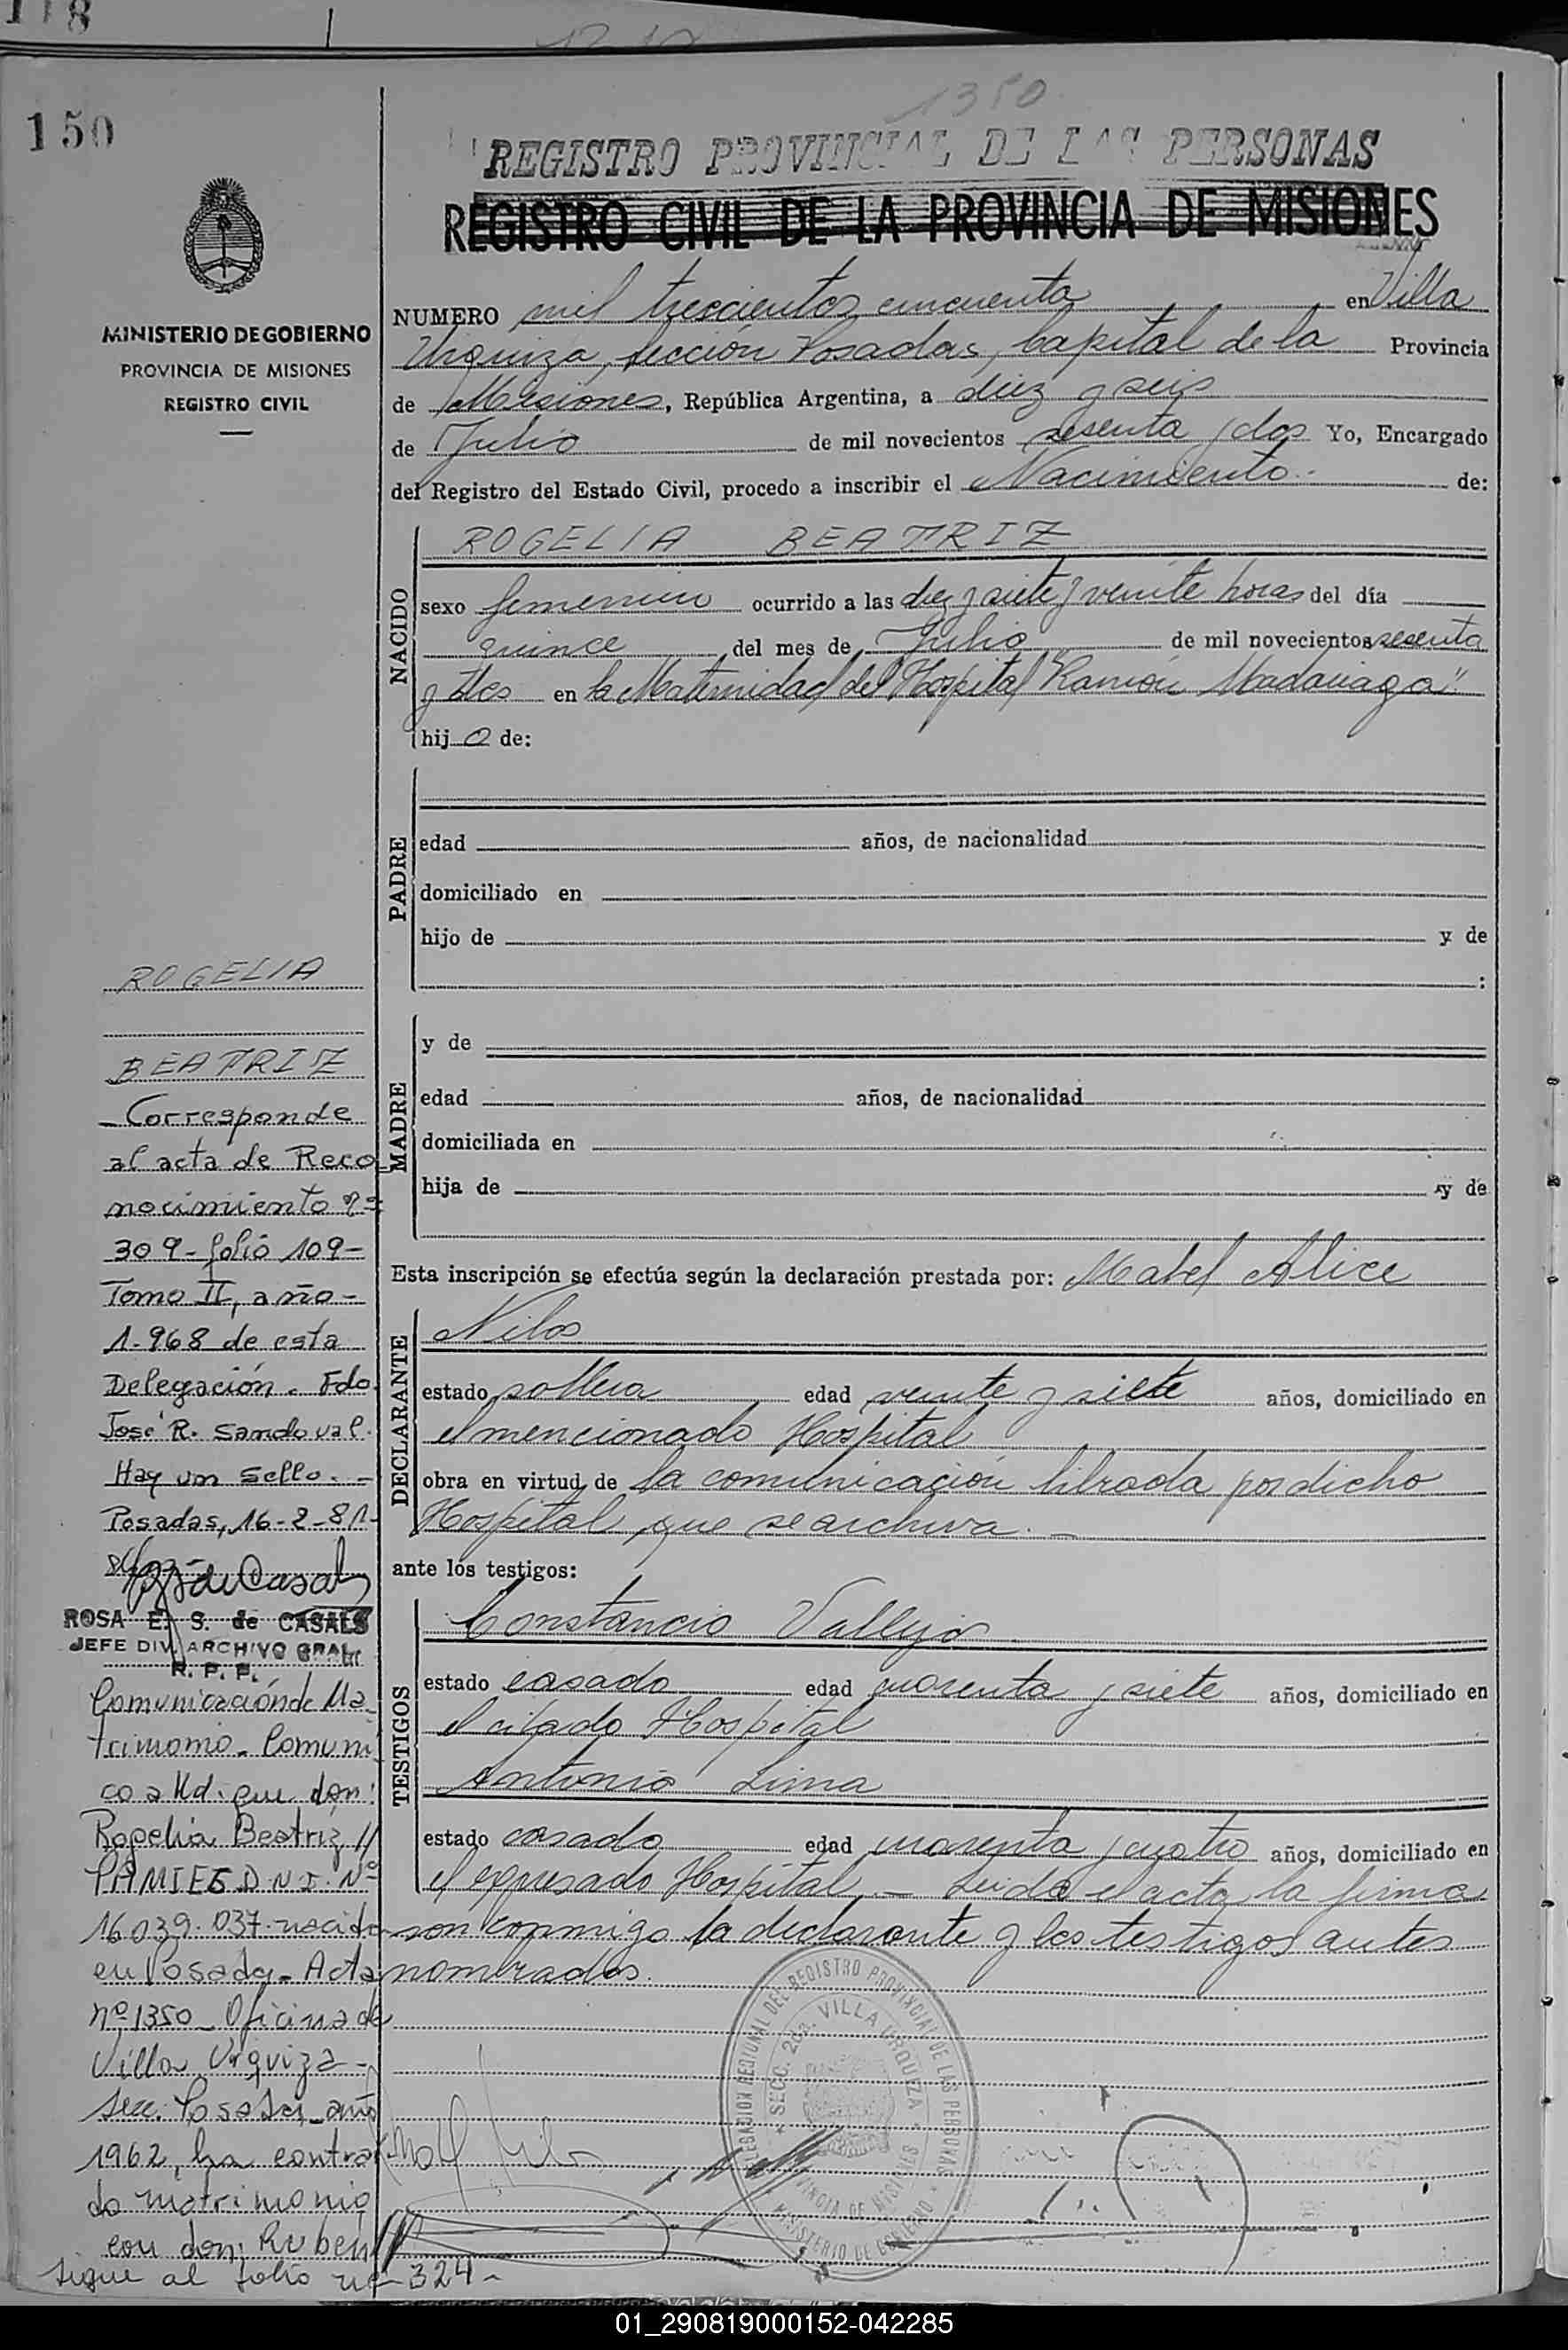 118
150
1350
REGISTRO PROVINCIAL DE LAS PERSONAS
REGISTRO CIVIL DE LA PROVINCIA DE MISIONES
MINISTERIO DE GOBIERNO
PROVINCIA DE MISIONES
REGISTRO CIVIL
NUMERO mil trescientos cincuenta en Villa
Urquiza, sección Posadas, Capital de la Provincia
de Misiones, República Argentina, a diez y seis
de Julio de mil novecientos sesenta y dos Yo, Encargado
del Registro del Estado Civil, procedo a inscribir el Nacimiento. de:
NACIDO
ROGELIA BEATRIZ
sexo femenino ocurrido a las diez y siete y veinte horas del día
quince del mes de Julio de mil novecientos sesenta
y dos en la Maternidad del Hospital "Ramón Madariaga".
hij o de:
PADRE
edad años, de nacionalidad
domiciliado en
hijo de y de
:
MADRE
y de
edad años, de nacionalidad
domiciliada en
hija de y de
Esta inscripción se efectúa según la declaración prestada por: Mabel Alice
DECLARANTE
Nilos
estado soltera edad veinte y siete años, domiciliado en
el mencionado Hospital
obra en virtud de la comunicación librada por dicho
Hospital que se archiva. -
ante los testigos:
TESTIGOS
Constancio Vallejos
estado casado edad cuarenta y siete años, domiciliado en
el citado Hospital
Antonio Lima
estado casado edad cuarenta y cuatro años, domiciliado en
el expresado Hospital. - Leida el acta la firma
son conmigo la declarante y los testigos antes
nombrados.
ROGELIA
BEATRIZ
- Corresponde
al acta de Reco-
nocimiento nº
309 - folio 109 -
Tomo II, año -
1.968 de esta
Delegación. Fdo.
José R. Sandoval.
Hay un sello. -
Posadas, 16-2-81-
ROSA E. S. de CASALS
JEFE DIV. ARCHIVO GRAL.
R. P. P.
Comunicación de Ma-
trimonio. Comuni
co a Ud. que don:
Rogelia Beatriz //
RAMIEE D.N.I. Nº
16.039.037 nacida
en Posadas - Acta
nº 1350 - Oficina de
Villa Urquiza -
Secc. Posadas - año
1962, ha contraí
do matrimonio
con don: Ruben
sigue al folio nº 324 -
DELEGACION REGIONAL DEL REGISTRO PROVINCIAL DE LAS PERSONAS
SECC. 2da. VILLA URQUIZA
PROVINCIA DE MISIONES
MINISTERIO DE GOBIERNO
01_290819000152-042285